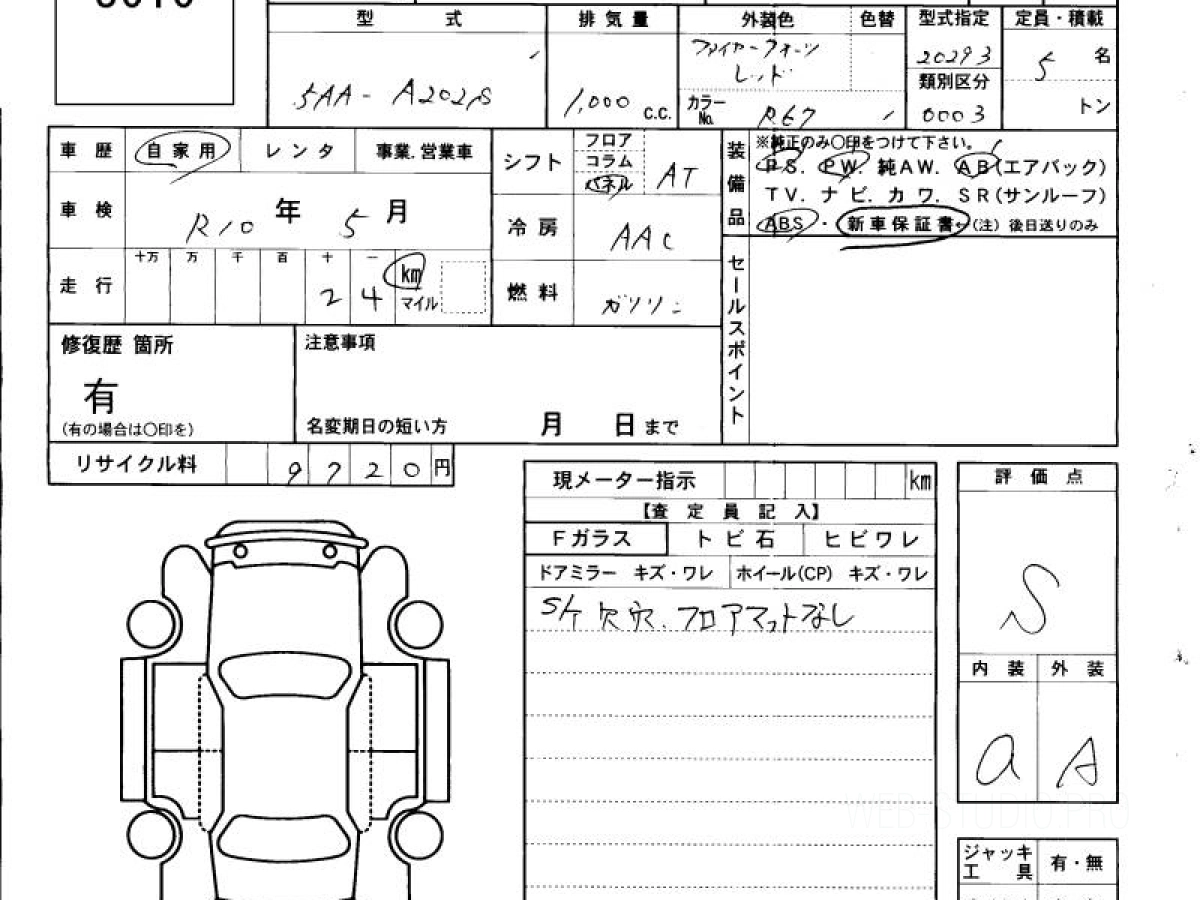 型 式 排気量 外装色 色替 型式指定 定員・積載
5AA-A202S 1,000 c.c. ファイヤークォーツ
レッド
カラーNo. R67
20293
類別区分
0003
5 名
トン
車歴 自家用 レンタ 事業.営業車
車検 R10年 5月
走行 十万 万 千 百 十 一
2 4 km
マイル
シフト フロア
コラム
パネル AT
冷房 AAC
燃料 ガソリン
装備品 ※純正のみ〇印をつけて下さい。
PS. PW. 純AW. AB(エアバック)
TV. ナビ. カワ. SR(サンルーフ)
ABS・新車保証書←(注)後日送りのみ
セールスポイント
修復歴 箇所
有
(有の場合は〇印を)
注意事項
名変期日の短い方 月 日まで
リサイクル料 9720円
現メーター指示 km
【査定員記入】
Fガラス トビ石 ヒビワレ
ドアミラー キズ・ワレ ホイール(CP) キズ・ワレ
フロアマットなし
評価点
S
内装 外装
a A
ジャッキ
工具 有・無
WEB-STUDIO.PRO